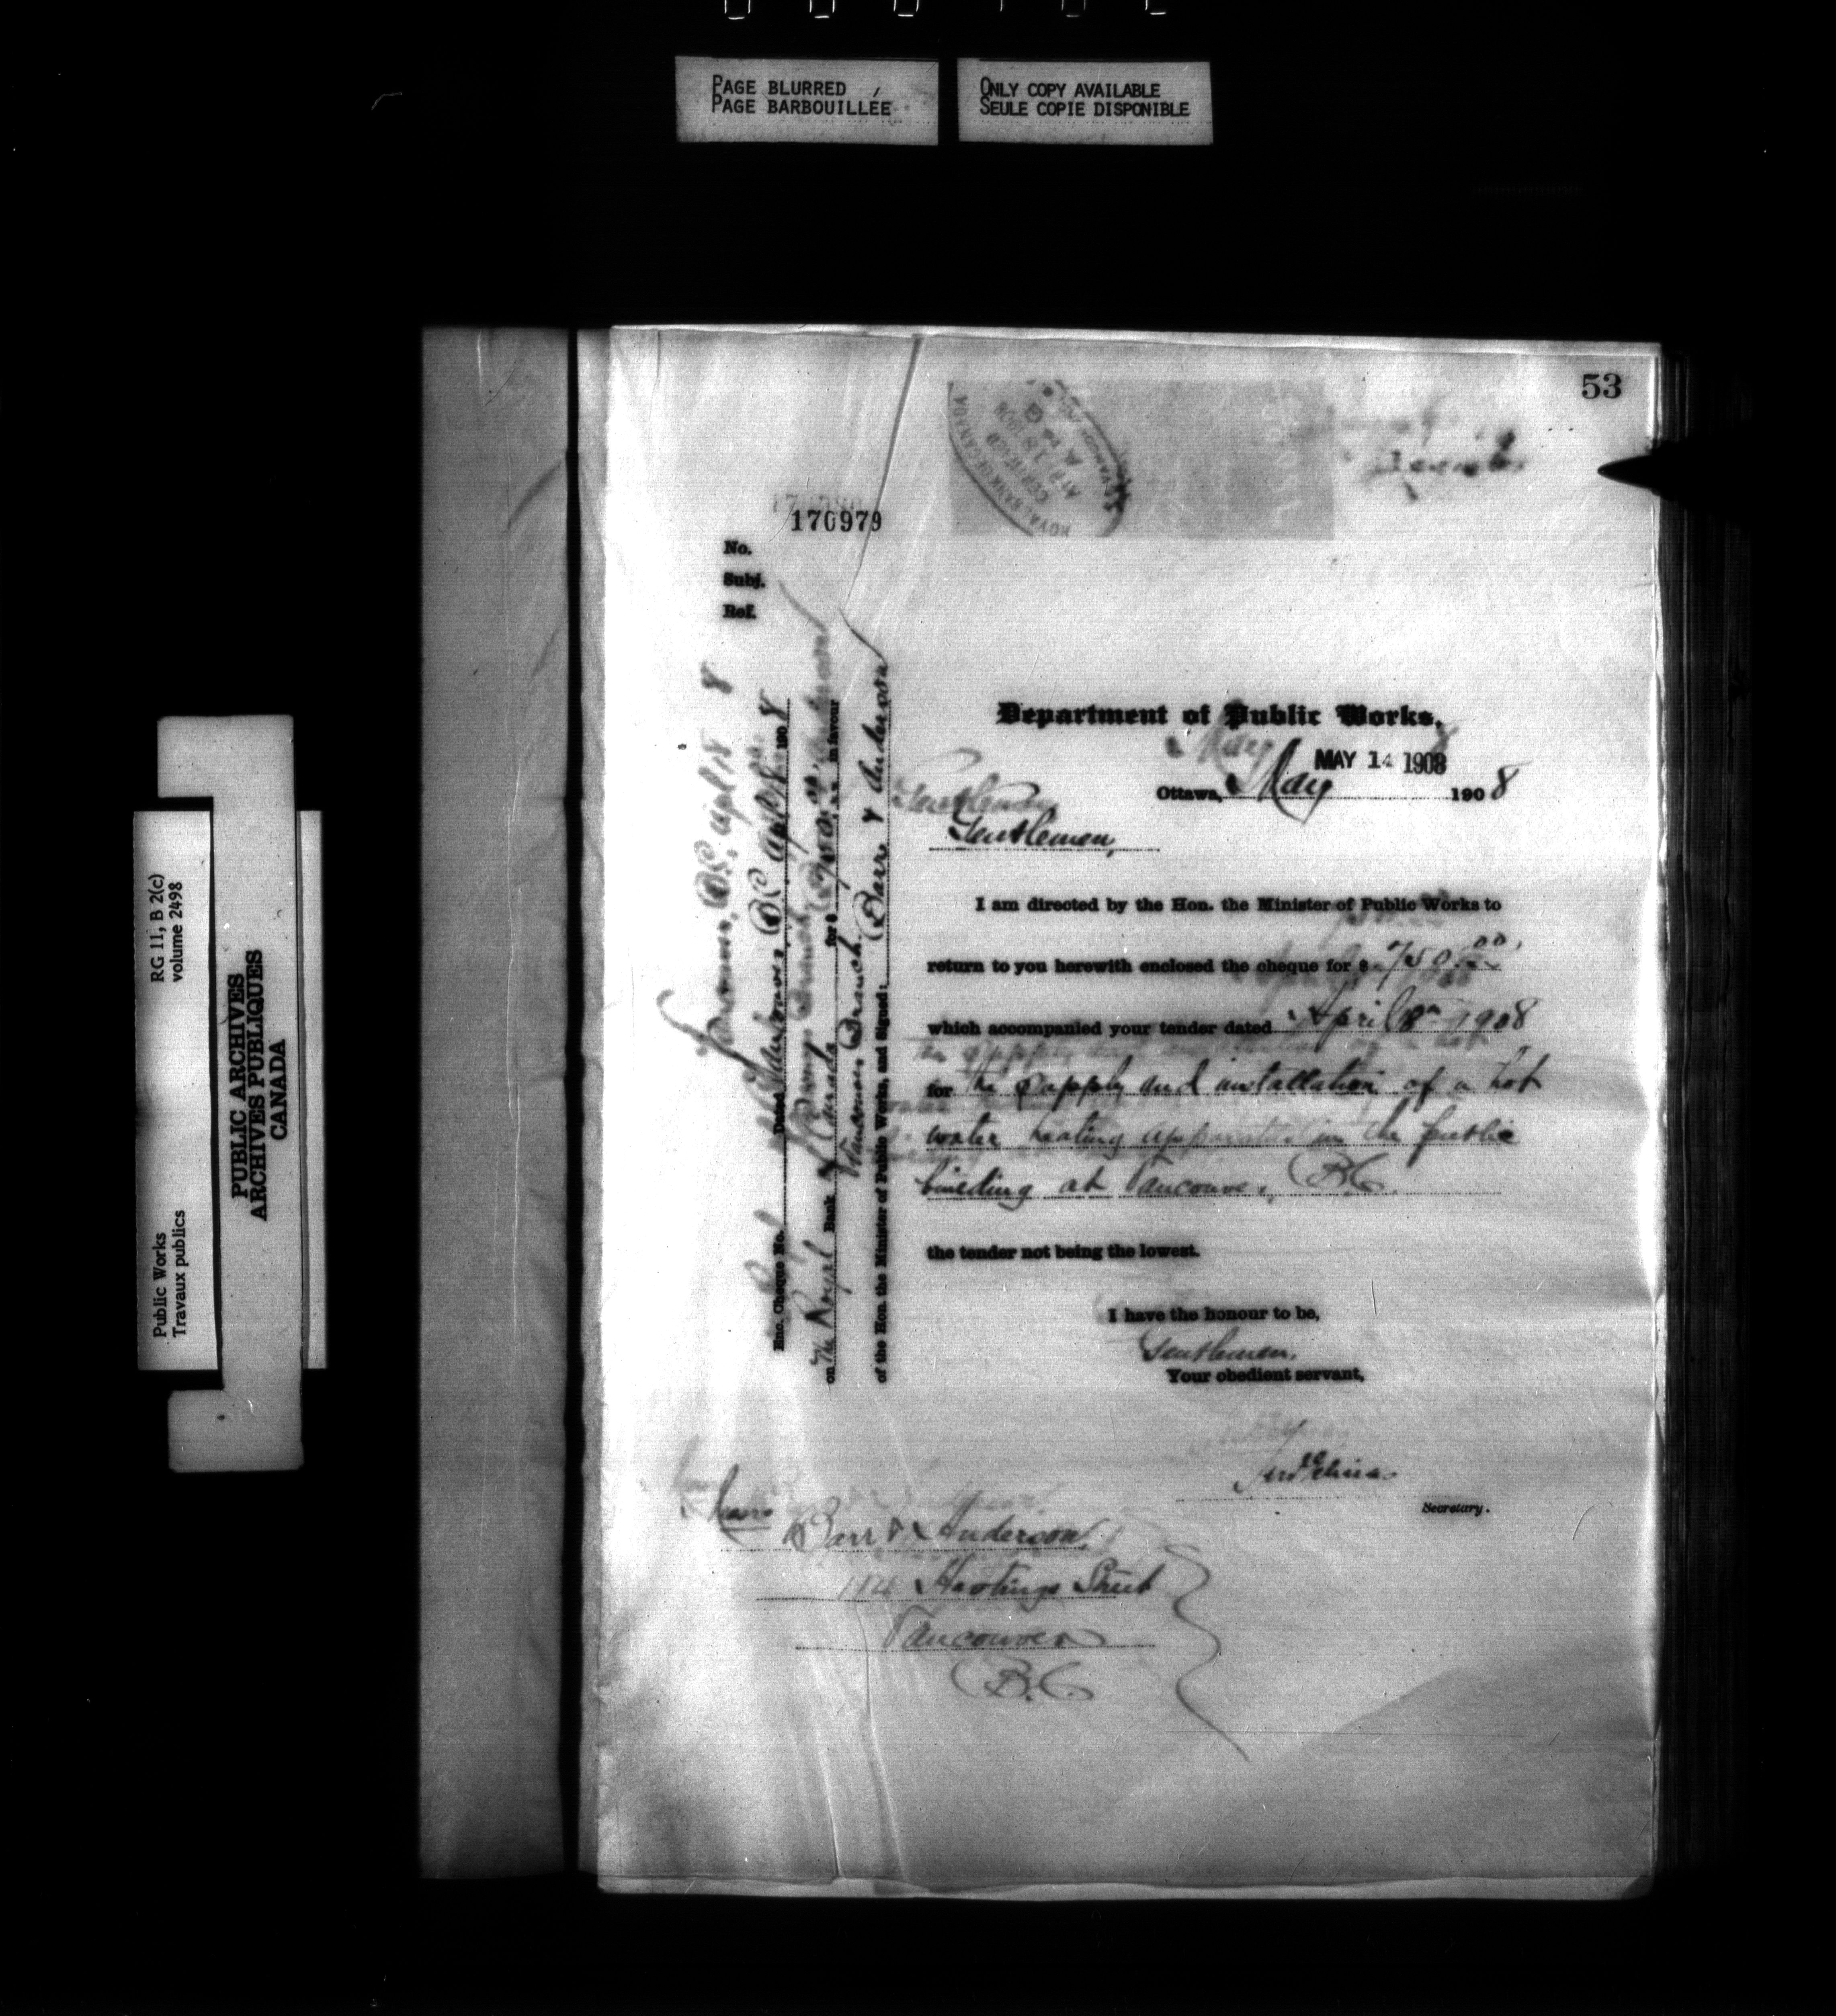 PAGE BLURRED
PAGE BARBOUILLÉE
ONLY COPY AVAILABLE
SEULE COPIE DISPONIBLE
53
ROYAL BANK OF CANADA
CERTIFIED
170979
No.
Subj.
Ref.
Department of Public Works,
MAY 14 1908
Ottawa, May 1908
Gentlemen,
I am directed by the Hon. the Minister of Public Works to
return to you herewith enclosed the cheque for $ 750.00,
which accompanied your tender dated April 8th 1908
for the supply and installation of a hot
water heating apparatus in the public
building at Vancouver, B.C.
the tender not being the lowest.
I have the honour to be,
Gentlemen,
Your obedient servant,
Secretary.
Messrs
Barr & Anderson,
114 Hastings Street
Vancouver
B.C.
Enc. Cheque No. Dated Vancouver BC apl 18 1908
on The Royal Bank of Canada for $ in favour
Vancouver Branch
of the Hon. the Minister of Public Works, and Signed: Barr & Anderson
Public Works
Travaux publics
RG 11, B 2(c)
volume 2498
PUBLIC ARCHIVES
ARCHIVES PUBLIQUES
CANADA